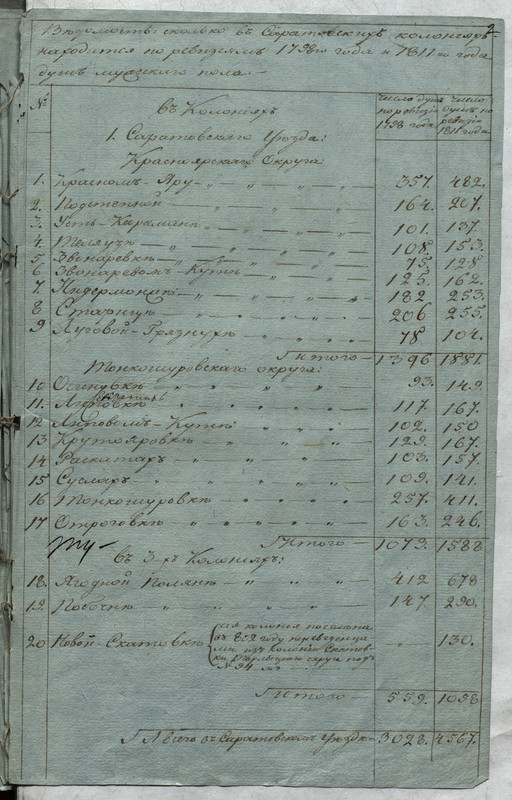 2
Ведомость сколько въ Саратовскихъ колонiяхъ
находится по ревизiямъ 1798го года и 1811го года
душъ мужскаго пола.
№ Въ Колонiяхъ Число душъ по ревизiи 1798 года. Число душъ по ревизiи 1811 года.
1. Саратовскаго Уезда:
Красноярскаго Округа:
1. Красномъ-Яру 357. 482.
2. Подстепной 164. 207.
3. Усть-Караманѣ 101. 137.
4. Теляузѣ 108. 153.
5 Звонаревкѣ 75. 128
6 Звонаревомъ-Кутѣ 125. 162.
7. Ендерманѣ 182 253.
8 Старицѣ 206 255.
9 Луговой-Грязнухѣ 78 104.
Итого 1396 1881.
Тонкошуровскаго округа:
10 Осиновкѣ 93. 149.
11. Липовкѣ 117. 167.
12 Липовомъ-Кутѣ 102. 150
13 Крутояровкѣ 129. 167.
14 Раскатахъ 103. 157.
15 Суслахъ 109. 141.
16 Тонкошуровкѣ 257. 411.
17 Отроговкѣ 163. 246.
Итого 1073. 1588
въ 3-хъ Колонiяхъ:
18. Ягодной Полянѣ 412 678
19 Побочнѣ 147. 290.
20 Новой-Скатовкѣ сiя колонiя поселена
въ 802 году переведенца-
ми изъ Колонiи Скатов-
ки округа подъ
№ 94 130.
Итого 559. 1098
А всего въ Саратовскомъ Уездѣ 3028. 4567.